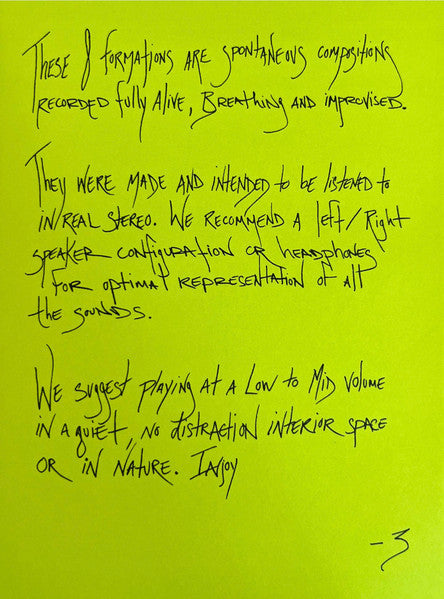 These 8 formations are spontaneous compositions
recorded fully Alive, Breathing and improvised.
They were made and intended to be listened to
in real stereo. We recommend a left/Right
speaker configuration or headphones
for optimal representation of all
the sounds.
We suggest playing at a Low to Mid volume
in a quiet, no distraction interior space
or in nature. Injoy
-3